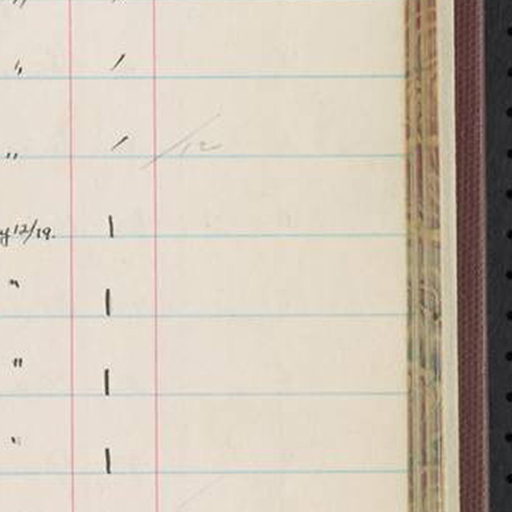 " /
" / /12
y 12/19. 1
" 1
" 1
" 1